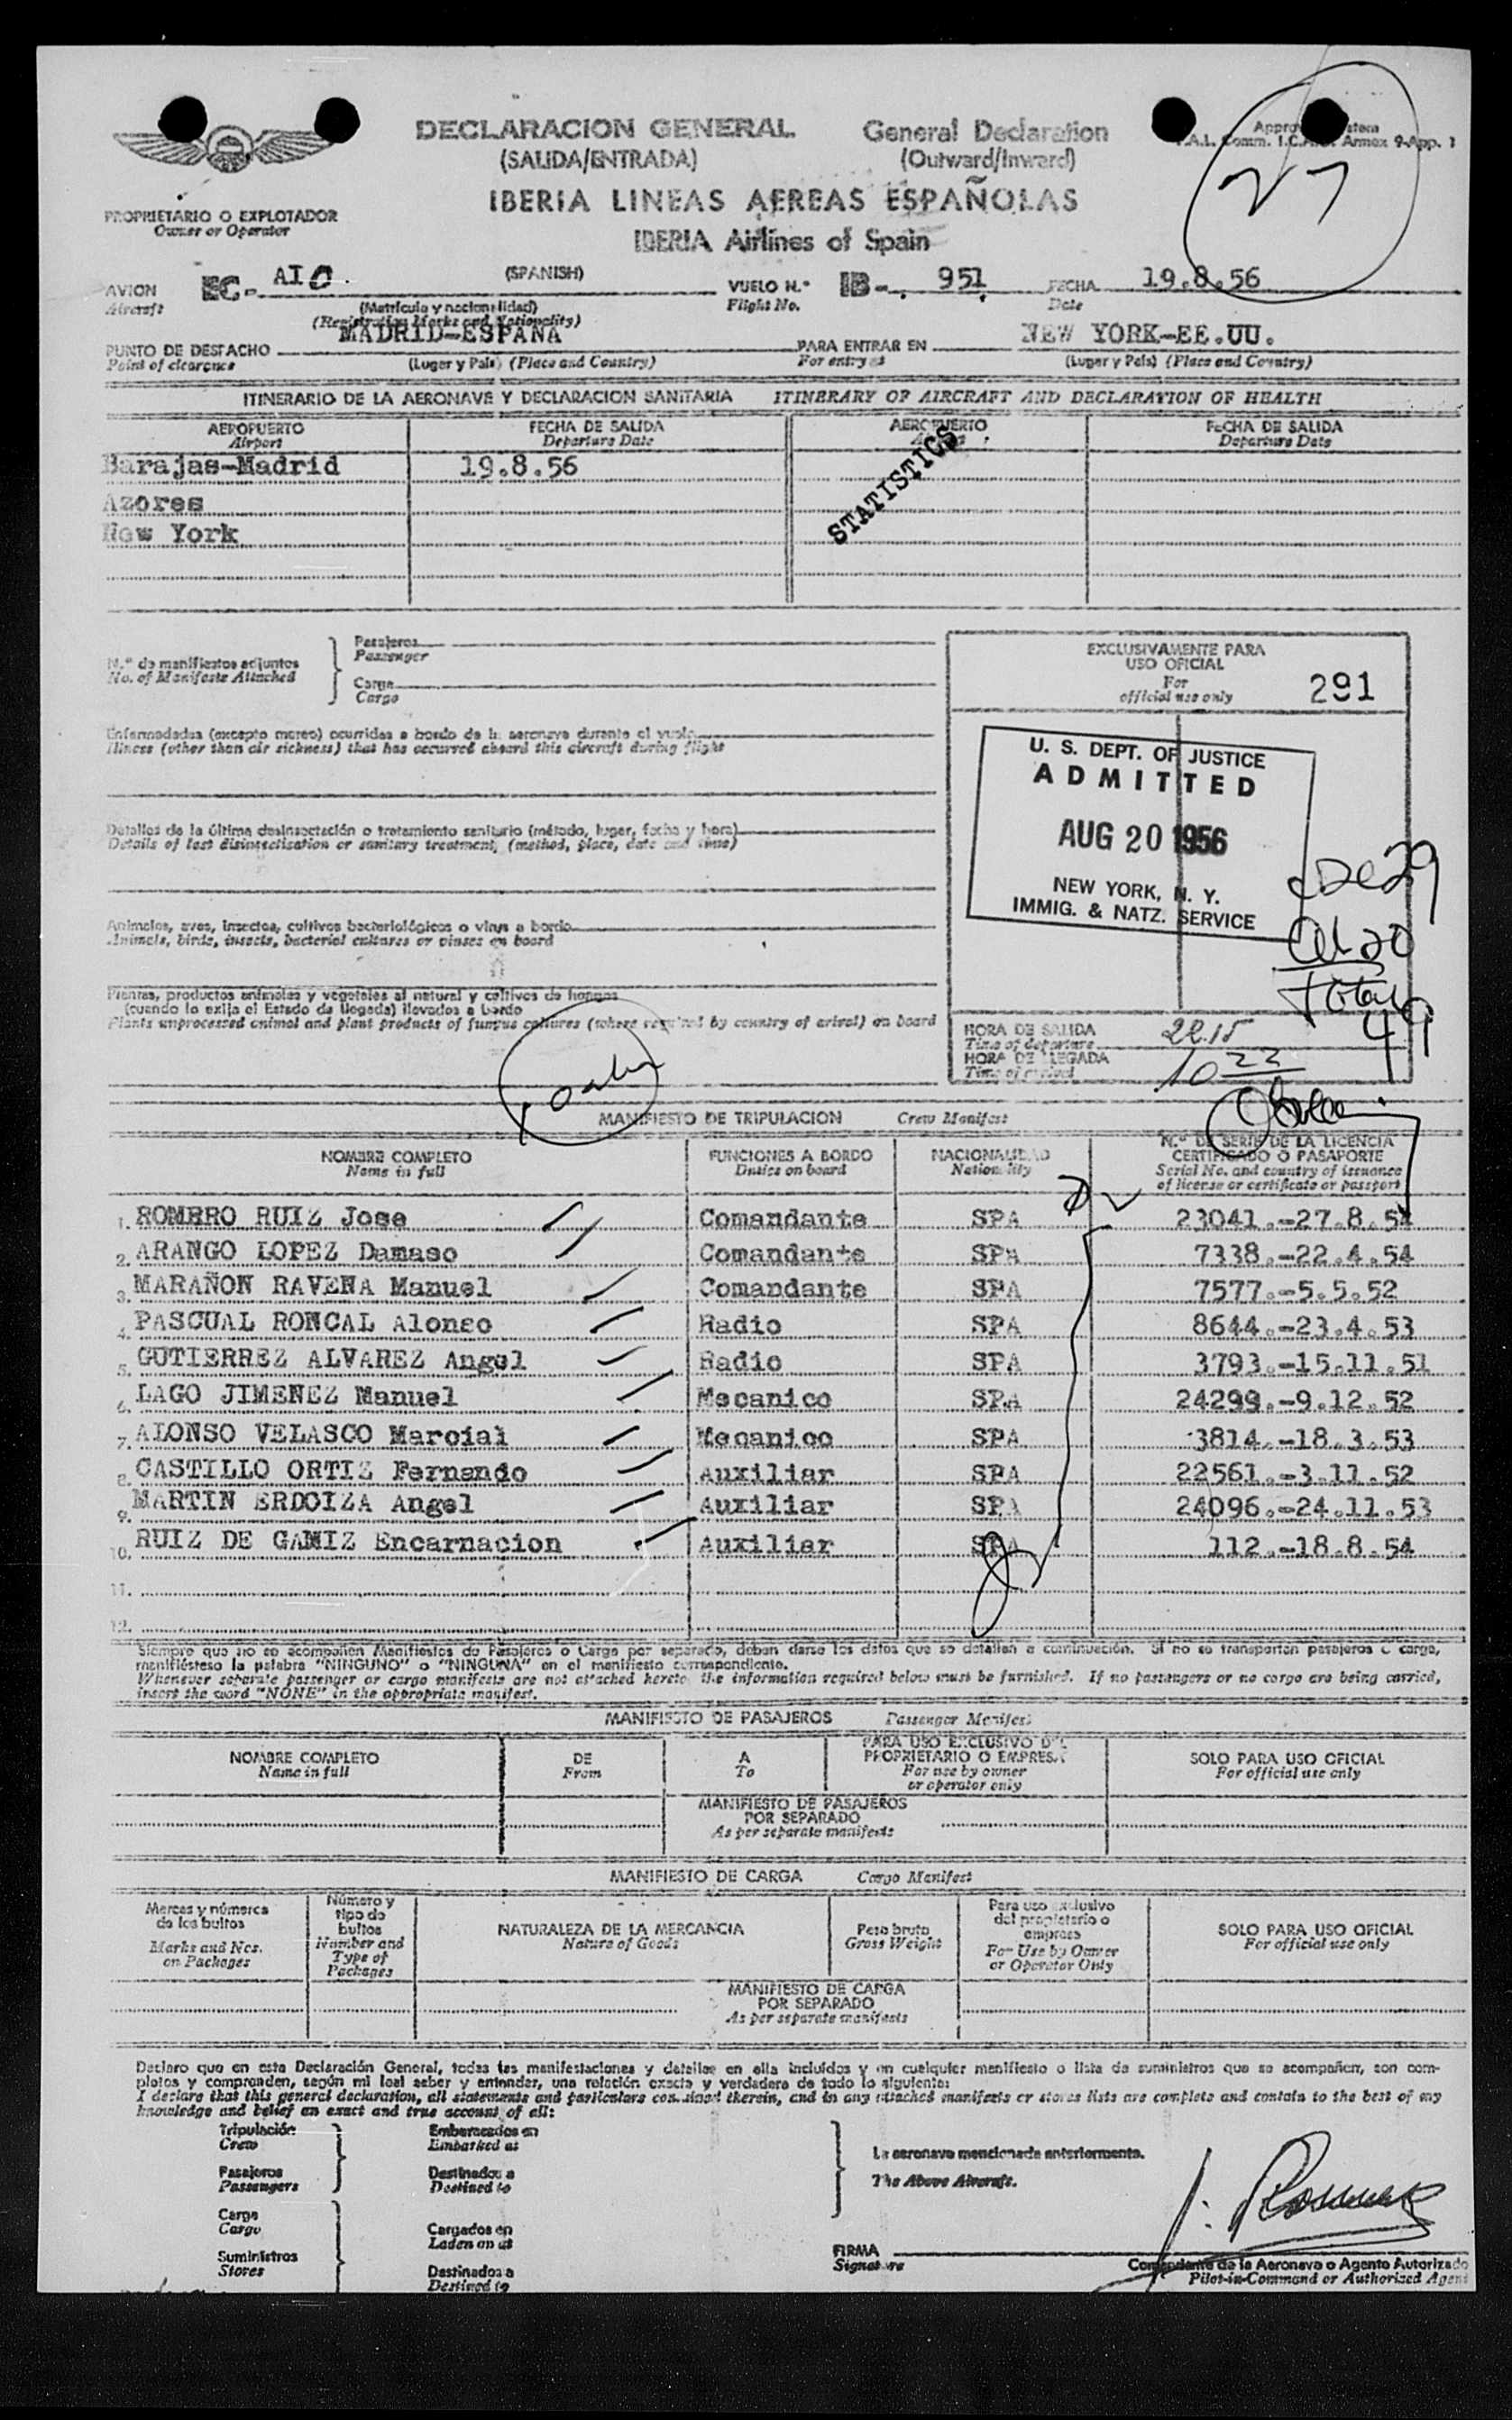 DECLARACION GENERAL General Declaration
(SALIDA/ENTRADA) (Outward/Inward)
Comm. Annex 9-App. 1
27
IBERIA LINEAS AEREAS ESPAÑOLAS
IBERIA Airlines of Spain
PROPRIETARIO O EXPLOTADOR
Owner or Operator
AVION EC- AIO. (SPANISH) VUELO N.º IB-. 951. FECHA 19.8.56
Aircraft (Matrícula y nacionalidad) Flight No. Date
(Registration Marks and Nationality)
MADRID-ESPAÑA NEW YORK-EE.UU.
PUNTO DE DESPACHO PARA ENTRAR EN
Point of clearance (Lugar y País) (Place and Country) For entry at (Lugar y País) (Place and Country)
ITINERARIO DE LA AERONAVE Y DECLARACION SANITARIA ITINERARY OF AIRCRAFT AND DECLARATION OF HEALTH
AEROPUERTO FECHA DE SALIDA AEROPUERTO FECHA DE SALIDA
Airport Departure Date Departure Date
Barajas-Madrid 19.8.56
STATISTICS
Azores
New York
N.º de manifiestos adjuntos
No. of Manifests Attached
Pasajeros
Passenger
Carga
Cargo
EXCLUSIVAMENTE PARA
USO OFICIAL
For
official use only
291
Enfermedades (excepto mareo) ocurridas a bordo de la aeronave durante el vuelo
Illness (other than air sickness) that has occurred aboard this aircraft during flight
U. S. DEPT. OF JUSTICE
ADMITTED
AUG 20 1956
NEW YORK, N. Y.
IMMIG. & NATZ. SERVICE
Detalles de la última desinsectación o tratamiento sanitario (método, lugar, fecha y hora)
Details of last disinsectisation or sanitary treatment, (method, place, date and time)
Animales, aves, insectos, cultivos bacteriológicos o virus a bordo
Animals, birds, insects, bacterial cultures or viruses on board
Total
49
Plantas, productos animales y vegetales al natural y cultivos de hongos
(cuando lo exija el Estado de llegada) llevados a bordo
Plants unprocessed animal and plant products of fungus cultures (where required by country of arival) on board
HORA DE SALIDA 22.15
Time of departure
HORA DE LLEGADA 10 22
Time of arrival
MANIFIESTO DE TRIPULACION Crew Manifest
NOMBRE COMPLETO FUNCIONES A BORDO NACIONALIDAD N.º DE SERIE DE LA LICENCIA
CERTIFICADO O PASAPORTE
Name in full Duties on board Nationality Serial No. and country of issuance
of license or certificate or passport
1. ROMERO RUIZ Jose Comandante SPA 23041.-27.8.54
2. ARANGO LOPEZ Damaso Comandante SPA 7338.-22.4.54
3. MARAÑON RAVENA Manuel Comandante SPA 7577.-5.5.52
4. PASCUAL RONCAL Alonso Radio SPA 8644.-23.4.53
5. GUTIERREZ ALVAREZ Angel Radio SPA 3793.-15.11.51
6. LAGO JIMENEZ Manuel Mecanico SPA 24299.-9.12.52
7. ALONSO VELASCO Marcial Mecanico SPA 3814.-18.3.53
8. CASTILLO ORTIZ Fernando Auxiliar SPA 22561.-3.11.52
9. MARTIN ERDOIZA Angel Auxiliar SPA 24096.-24.11.53
10. RUIZ DE GAMIZ Encarnacion Auxiliar SPA 112.-18.8.54
11.
12.
Siempre que no se acompañen Manifiestos de Pasajeros o Carga por separado, deben darse los datos que se detallan a continuación. Si no se transportan pasajeros o carga,
manifiéstese la palabra "NINGUNO" o "NINGUNA" en el manifiesto correspondiente.
Whenever separate passenger or cargo manifests are not attached hereto the information required below must be furnished. If no passangers or no cargo are being carried,
insert the word "NONE" in the appropriate manifest.
MANIFIESTO DE PASAJEROS Passenger Manifest
NOMBRE COMPLETO DE A PARA USO EXCLUSIVO DEL
PROPRIETARIO O EMPRESA SOLO PARA USO OFICIAL
Name in full From To For use by owner
or operator only For official use only
MANIFIESTO DE PASAJEROS
POR SEPARADO
As per separate manifests
MANIFIESTO DE CARGA Cargo Manifest
Marcas y números
de los bultos
Marks and Nos.
on Packages
Número y
tipo de
bultos
Number and
Type of
Packages
NATURALEZA DE LA MERCANCIA
Nature of Goods
Peso bruto
Gross Weight
Para uso exclusivo
del propietario o
empresa
For Use by Owner
or Operator Only
SOLO PARA USO OFICIAL
For official use only
MANIFIESTO DE CARGA
POR SEPARADO
As per separate manifests
Declaro que en esta Declaración General, todas las manifestaciones y detalles en ella incluidos y en cualquier manifiesto o lista de suministros que se acompañen, son com-
pletos y comprenden, según mi leal saber y entender, una relación exacta y verdadera de todo lo siguiente:
I declare that this general declaration, all statements and particulars contained therein, and in any attached manifests or stores lists are complete and contain to the best of my
knowledge and belief an exact and true account of all:
Tripulación Embarcados en
Crew Embarked at
La aeronave mencionada anteriormente.
Pasajeros Destinados a
Passengers Destined to
The Above Aircraft.
Carga Cargados en
Cargo Laden on at
Suministros Destinados a
Stores Destined to
J. Romero
FIRMA
Signature
Comandante de la Aeronave o Agente Autorizado
Pilot-in-Command or Authorized Agent